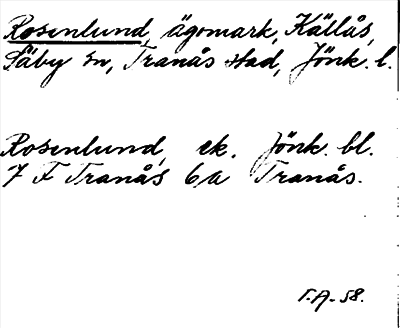 Rosenlund, ägomark, Källås,
Säby sn, Tranås stad, Jönk. l.
Rosenlund, ek. Jönk. bl.
7 F Tranås 6a Tranås.
T.A. 58.